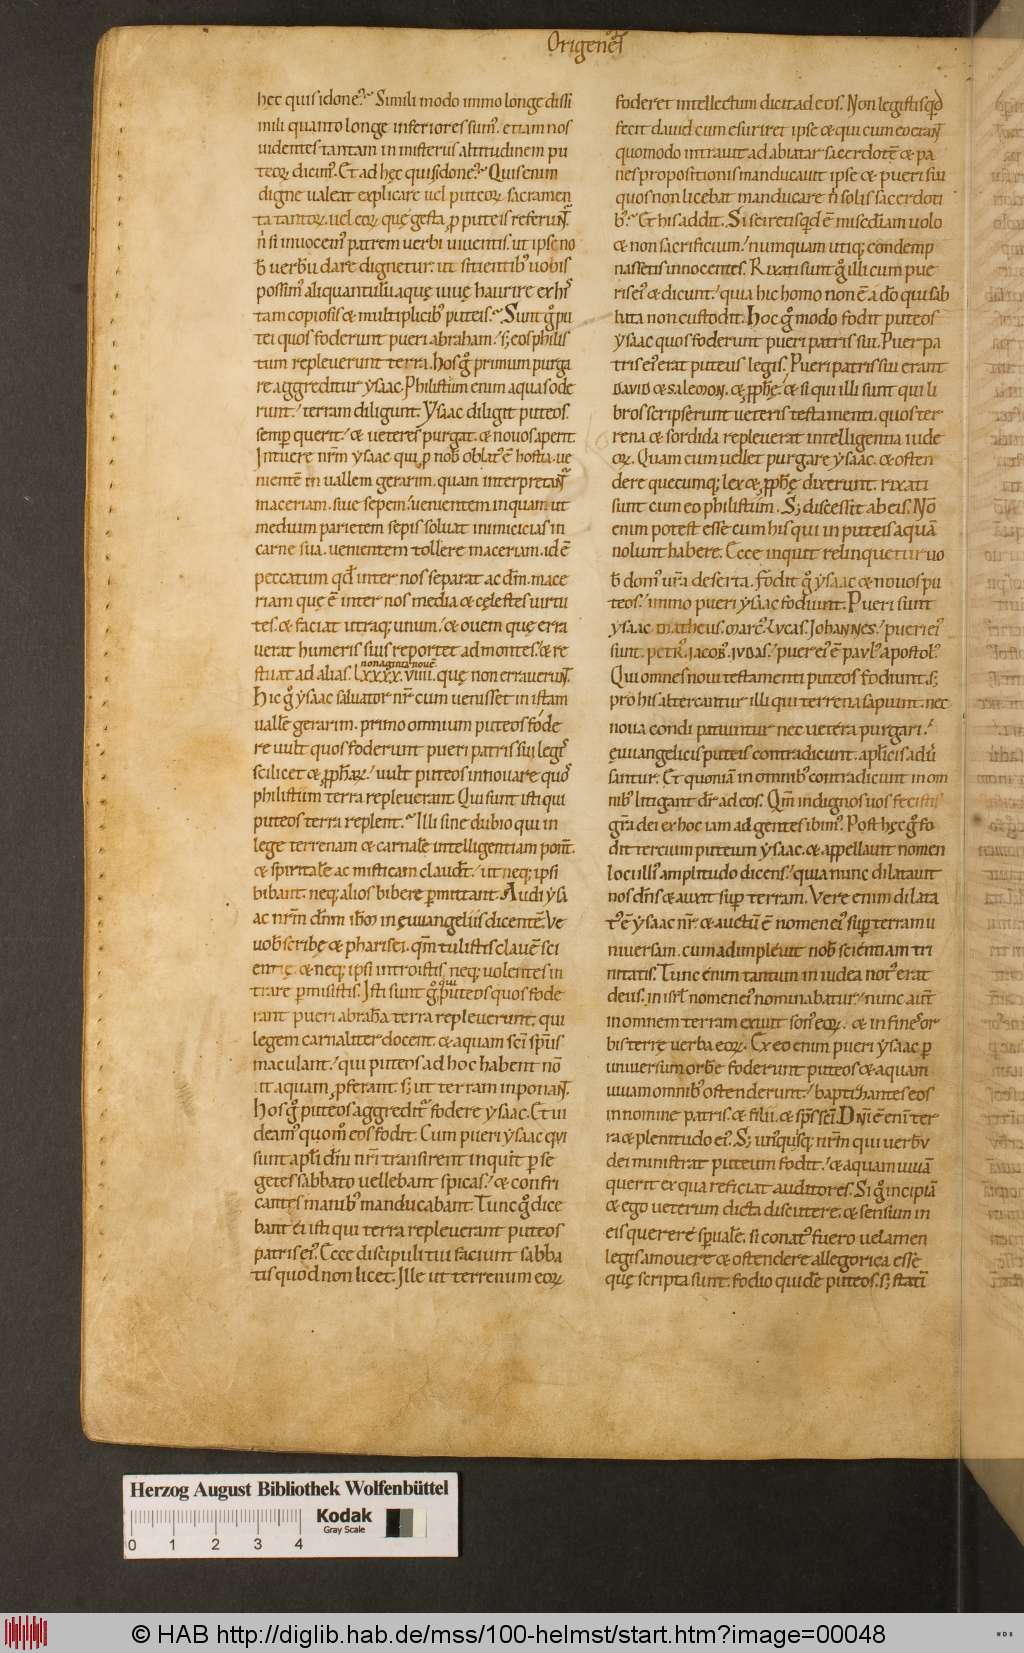 Origenes
hęc quis idone᷒? Simili modo immo longe dissi
mili quanto longe inferiores sum᷒. etiam nos
uidentes tantam in misteriis altitudinem pu
teoꝝ dicim᷒. Et ad hęc quis idone᷒? Quis enim
digne ualeat explicare uel puteoꝝ sacramen
ta tantoꝝ. uel eoꝝ quę gesta ꝓ puteis referunt̃
n̄ si inuocem᷒ patrem uerbi uiuentis. ut ipse no
b᷒ uerbū dare dignetur. ut sitientib᷒ uobis
possim᷒ aliquantulū aquę uiuę haurire ex his
tam copiosis & multiplicib᷒ puteis. Sunt g̊ pu
tei quos foderunt pueri abraham. s; eos philis
tiim repleuerunt terra. hos g̊ primum purga
re aggreditur ysaac. Philistiim enim aquas ode
runt. terram diligunt. Ysaac diligit puteos.
semp querit. & ueteres purgat. & nouos aperit.
Intuere nr̄m ysaac. qui ꝓ nob᷒ oblat᷒ ē hostia. ue
nientē in uallem gerarim. quam interpretant̃
maceriam. siue sepem. uenientem inquam. ut
medium parietem sepis soluat inimicicias in
carne sua. uenientem tollere maceriam. id ē
peccatum qđ inter nos separat ac dm̄. mace
riam quę ē inter nos media & cęlestes uirtu
tes. & faciat utraq; unum. & ouem quę erra
uerat humeris suis reportet ad montes. & re
nonaginta nouē
stituat ad alias. lxxxx.viiii. quę non errauerunt̃.
Hic g̊ ysaac saluator nr̄ cum uenisset in istam
uallē gerarim. primo omnium puteos fode
re uult quos foderunt pueri patris sui legis
scilicet & ꝓph̄arꝝ. uult puteos innouare quos
philistiim terra repleuerant. Qui sunt isti qui
puteos terra replent? Illi sine dubio qui in
lege terrenam & carnalē intelligentiam ponūt.
& spiritalē ac misticam claudūt. ut neq; ipsi
bibant. neq; alios bibere p̱mittant. Audi ysa
ac nr̄m dn̄m ih̄m in ęuuangeliis dicentē. Ve
uob᷒ scribę & pharisei. qm̄ tulistis clauē sci
entię. & neq; ipsi introistis. neq; uolentes in
trare p̱misistis. Isti sunt g̊ qui puteos quos fode
rant pueri abrahā terra repleuerunt. qui
legem carnaliter docent. & aquam sc̄i sp̄s
maculant. qui puteos ad hoc habent nō
ut aquam ꝓferant. s; ut terram inponant̃.
Hos g̊ puteos aggredit᷒ fodere ysaac. Et ui
deam᷒ quom̊ eos fodit. Cum pueri ysaac qui
sunt apl̄i dn̄i nr̄i transirent inquit p̱ se
getes sabbato uellebant spicas. & confri
cantes manib᷒ manducabant. Tunc g̊ dice
bant ei isti qui terra repleuerant puteos
patris ei᷒. Ecce discipuli tui faciunt sabba
tis quod non licet. Ille ut terrenum eoꝝ
foderet intellectum dicit ad eos. Non legistis quid
fecit dauid cum esuriret ipse & qui cum eo erant̃
quomodo intrauit ad abiatar sacerdotē & pa
nes propositionis manducauit ipse & pueri sui
quos non licebat manducare n̄ solis sacerdoti
b᷒? Et his addit. Si sciretis qđ ē misedīam uolo
& non sacrificium. numquam utiq; condemp
nassetis innocentes. Rixati sunt g̊ illi cum pue
ris ei᷒ & dicunt. quia hic homo non ē a dō qui sab
bata non custodit. Hoc g̊ modo fodit puteos
ysaac quos foderunt pueri patris sui. Puer pa
tris ei᷒ erat puteus legis. Pueri patris sui erant
DAVID & SALEMON. & ꝓph̄ę. & si qui illi sunt qui li
bros scripserunt ueteris testamenti. quos ter
rena & sordida repleuerat intelligentia iude
oꝝ. Quam cum uellet purgare ysaac. & osten
dere quecumq; lex & ꝓph̄ę dixerunt. rixati
sunt cum eo philistiim. S; discessit ab eis. Nō
enim potest esse cum his qui in puteis aquā
nolunt habere. Ecce inquit relinquetur uo
b᷒ dom᷒ ur̄a deserta. Fodit g̊ ysaac & nouos pu
teos. immo pueri ysaac fodiunt. Pueri sunt
ysaac matheus. MARC᷒. LVCAS. JOHANNES. pueri ei᷒
sunt. PETR᷒. JACOB᷒. JVDAS. puer ei᷒ ē PAVL᷒ apostol᷒.
Qui omnes noui testamenti puteos fodiunt. s;
pro his altercantur illi qui terrena sapiunt. nec
noua condi patiuntur nec uetera purgari.
ęuuangelicis puteis contradicunt. apl̄icis aduer
santur. Et quoniā in omnib᷒ contradicunt in om
nib᷒ litigant dr̄ ad eos. Qm̄ indignos uos fecistis
gr̄a dei ex hoc iam ad gentes ibim᷒. Post hęc g̊ fo
dit tercium puteum ysaac. & appellauit nomen
loci illi᷒ amplitudo dicens. quia nunc dilatauit
nos dn̄s & auxit sup̱ terram. Vere enim dilata
t᷒ ē ysaac nr̄. & auctū ē nomen ei᷒ sup̱ terram u
niuersam. cum adimpleuit nob᷒ scientiam tri
nitatis. Tunc enim tantum in iudea not᷒ erat
deus. in isr̄l nomen ei᷒ nominabatur. nunc aūt
in omnem terram exiuit son᷒ eoꝝ. & in fines or
bis terrę uerba eoꝝ. Ex eo enim pueri ysaac p̱
uniuersum orbē foderunt puteos & aquam
uiuam omnib᷒ ostenderunt. baptizantes eos
in nomine patris. & filii. & sp̄s sc̄i. Dn̄i ē enī ter
ra & plenitudo ei᷒. S; un᷒quisq; nr̄m qui uerbū
dei ministrat puteum fodit. & aquam uiuā
querit ex qua reficiat auditores. Si g̊ incipiā
& ego ueterum dicta discutere. & sensum in
eis querere sp̄ualē. si conat᷒ fuero uelamen
legis amouere & ostendere allegorica esse
quę scripta sunt. fodio quidē puteos. s; statī
Herzog August Bibliothek Wolfenbüttel
Kodak
Gray Scale
0 1 2 3 4
© HAB http://diglib.hab.de/mss/100-helmst/start.htm?image=00048